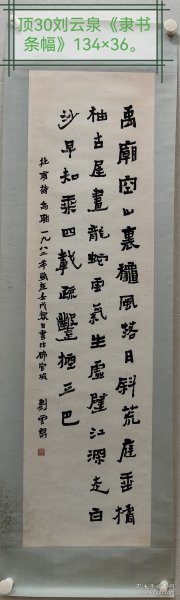 顶30刘云泉《隶书
条幅》134×36。
禹廟空山裏穐風落日斜荒庭垂橘
柚古屋畫龍蛇雲氣生虛壁江深走白
沙早知乘四載疏鑿控三巴
杜甫詩禹廟一九八二年歲在壬戌
劉雲泉